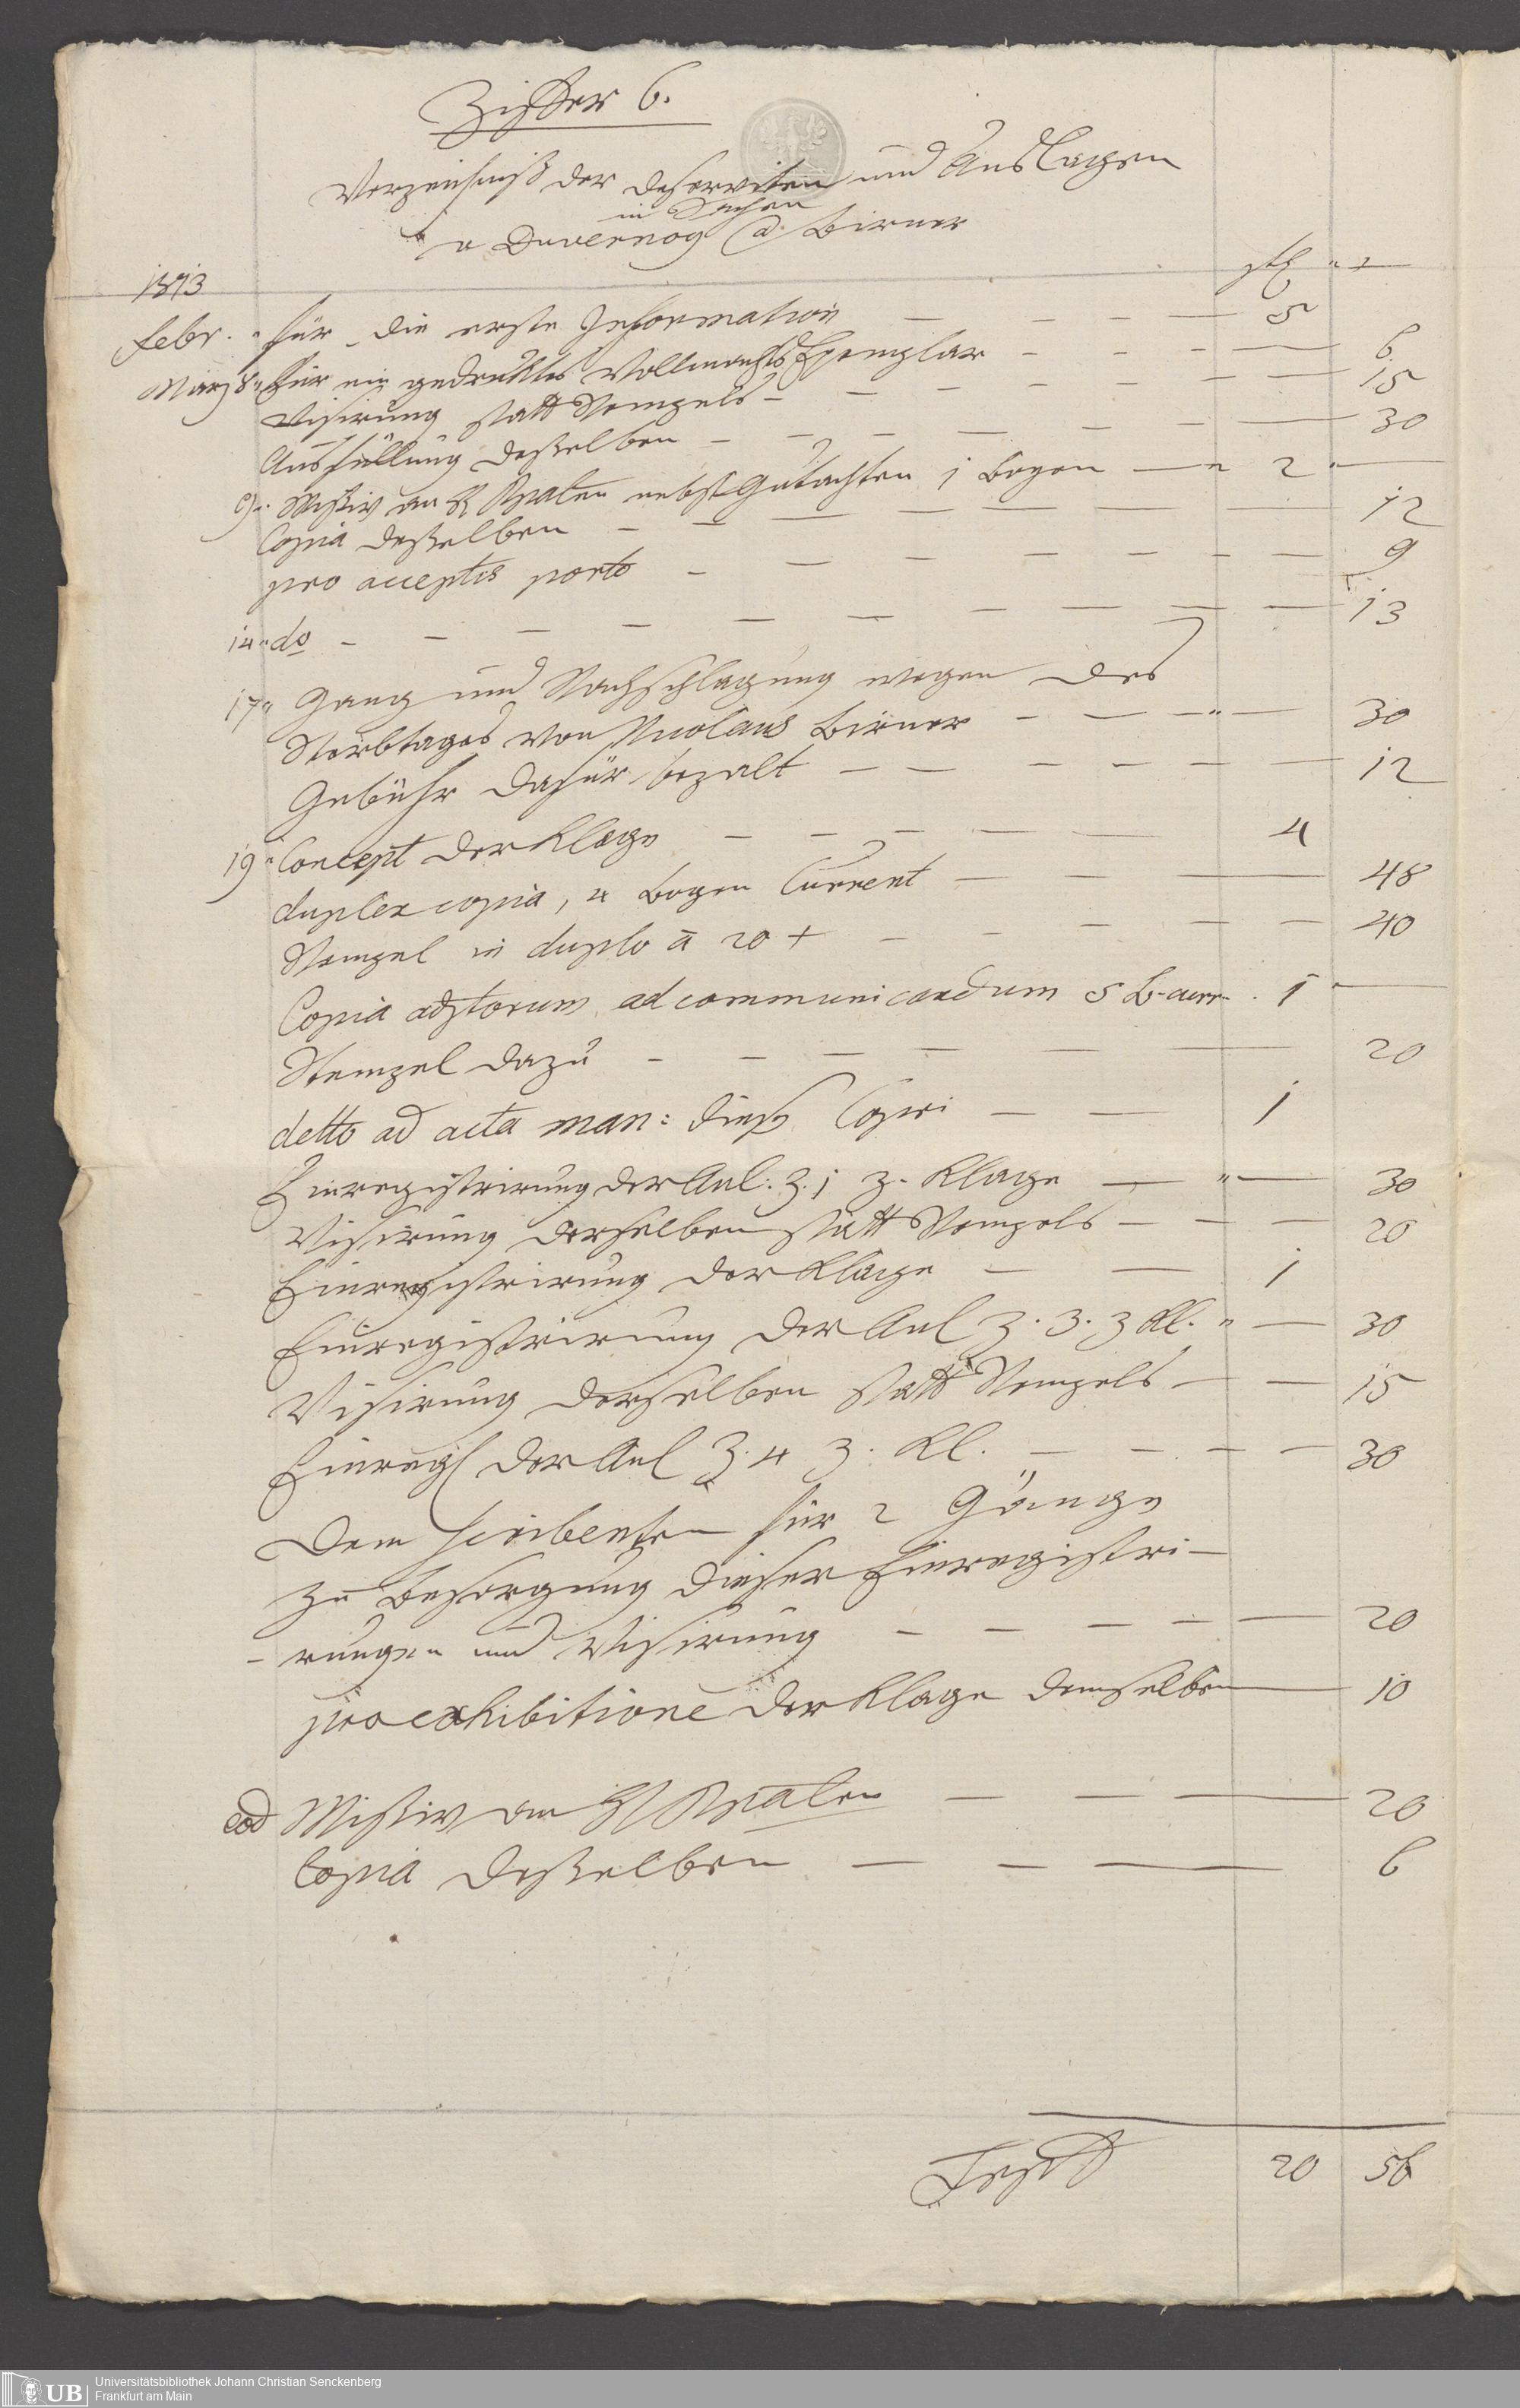 Ziffer 6.
Verzeichniß der Deserviten und Auslagen
in Sachen
v Duvernoy Ca. Birner
1813
Febr. " für die erste Information — — — — 5
März 8 " Für ein gedruktes Vollmachts Exemplar — — — 6
Visirung statt Stempels — — — — — 15
Ausfüllung deßelben — — — — — — 30
9 " Missiv an H nebst Gutachten 1 Bogen — " 2 " —
Copia deßelben — — — — — — 12
pro acceptis porto — — — — — 9
14 " do — — — — — — — 13
17 " Gang und Nachschlagung wegen des
Sterbtages von Nicolaus Birner — — — " — 30
Gebühr dafür bezalt — — — — — 12
19 " Concept der Klage — — — — — 4
duplex copia, 4 Bogen Current — — — 48
Stempel in duplo à 20 x — — — — — 40
Copia adjtorum ad communicandum 5 B. curr. . 1 " —
Stempel dazu — — — — — — 20
detto ad acta man: dieß Copei — — 1
Einregistrirung der Anl. Z. 1 z. Klage — " — 30
Visirung derselben statt Stempels — — — 20
Einregistrirung der Klage — — 1
Einregistrirung der Anl Z. 3. z Kl. " — 30
Visirung derselben statt Stempels — — 15
Einregs der Anl Z. 4 z. Kl. — — — — 30
Dem Scribenten für 2 Gänge
zu Besorgung dieser Einregistri-
- rungen und Visirung — — — — — 20
pro exhibitione der Klage demselben — 10
eod Missiv an H — — — 20
Copia deßelben — — — 6
20 56
Universitätsbibliothek Johann Christian Senckenberg
Frankfurt am Main
UB